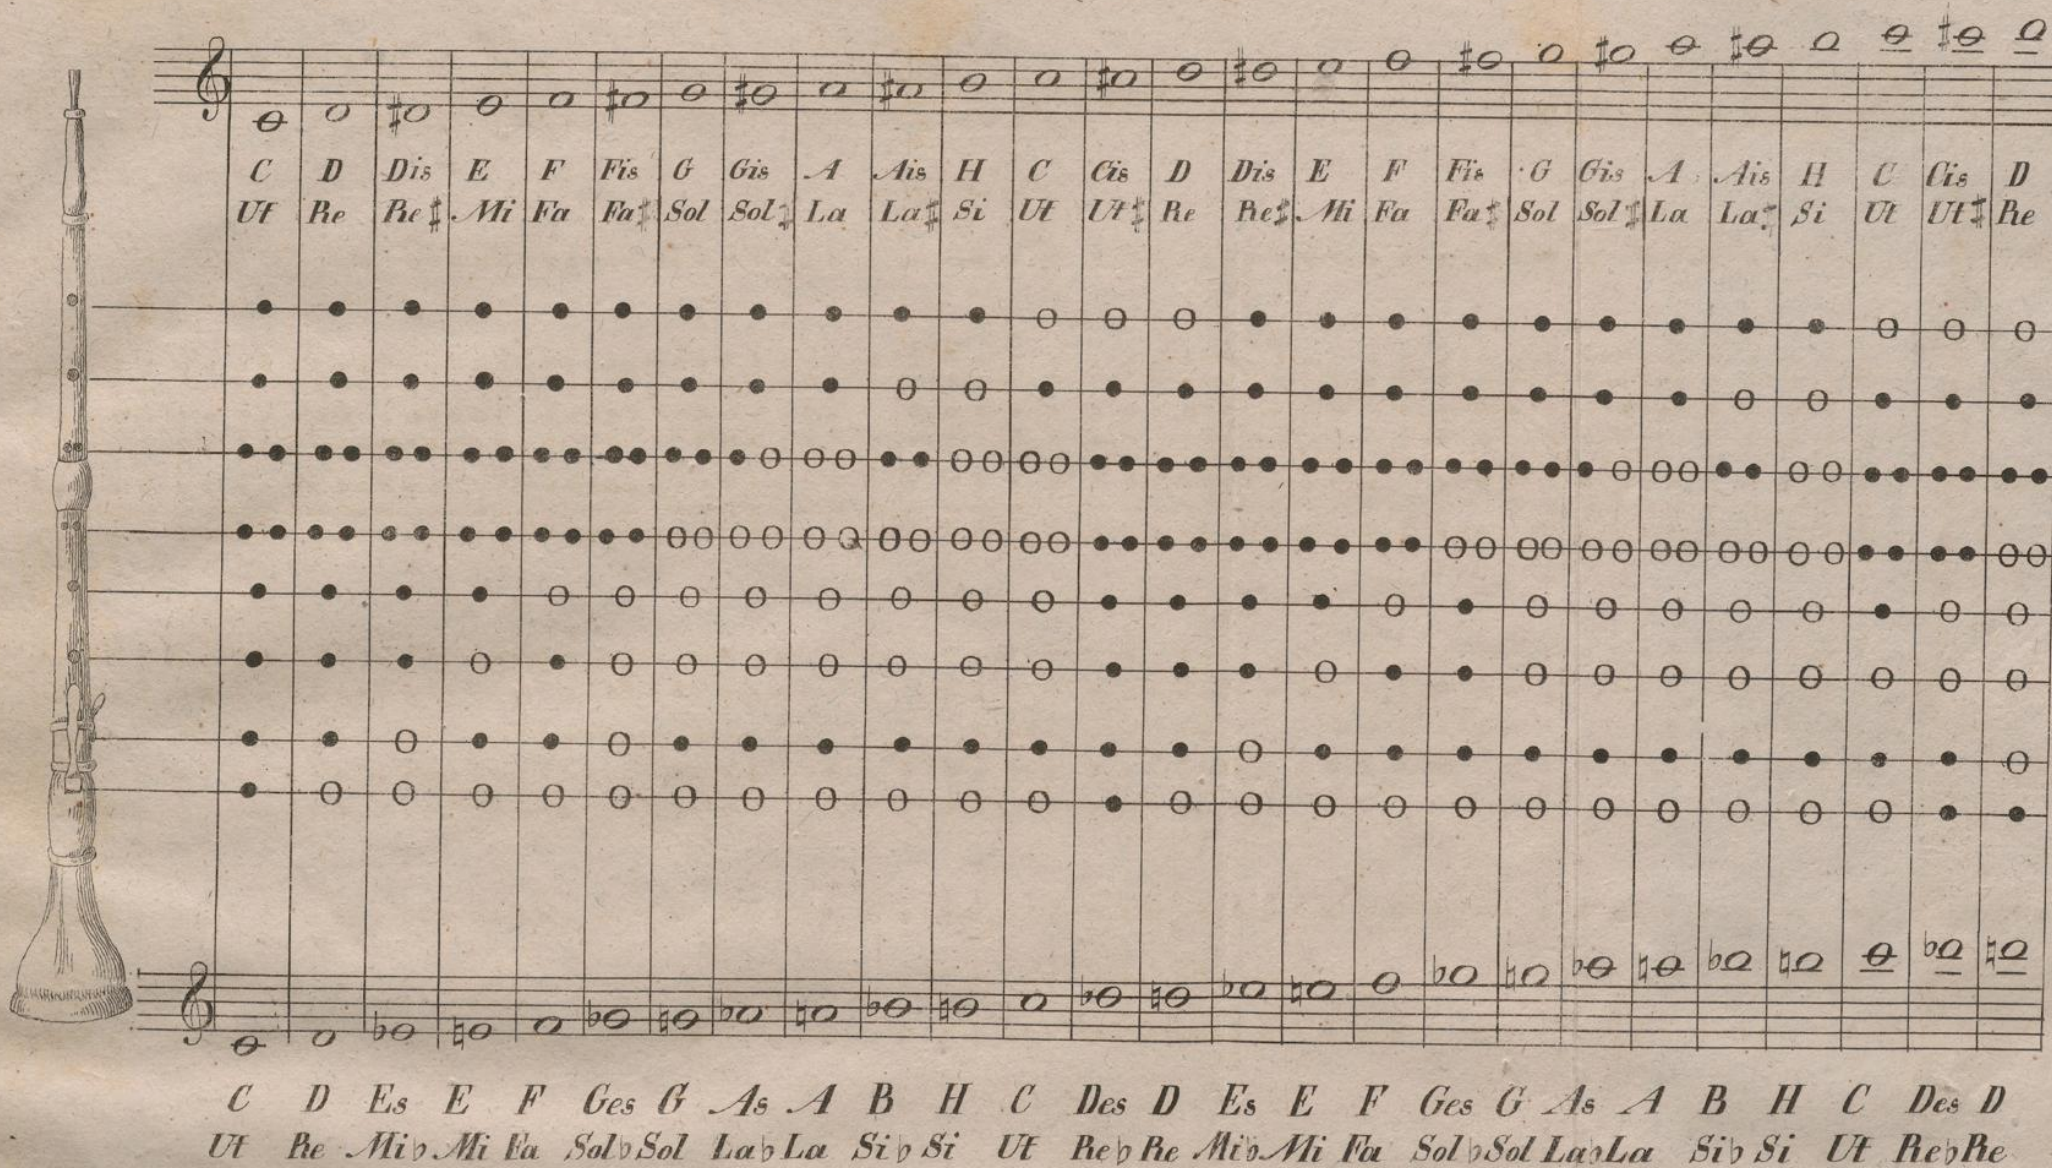 C D Dis E F Fis G Gis A Ais H C Cis D Dis E F Fis G Gis A Ais H C Cis D
Ut Re Re♯ Mi Fa Fa♯ Sol Sol♯ La La♯ Si Ut Ut♯ Re Re♯ Mi Fa Fa♯ Sol Sol♯ La La♯ Si Ut Ut♯ Re
C D Es E F Ges G As A B H C Des D Es E F Ges G As A B H C Des D
Ut Re Mi♭ Mi Fa Sol♭ Sol La♭ La Si♭ Si Ut Re♭ Re Mi♭ Mi Fa Sol♭ Sol La♭ La Si♭ Si Ut Re♭ Re